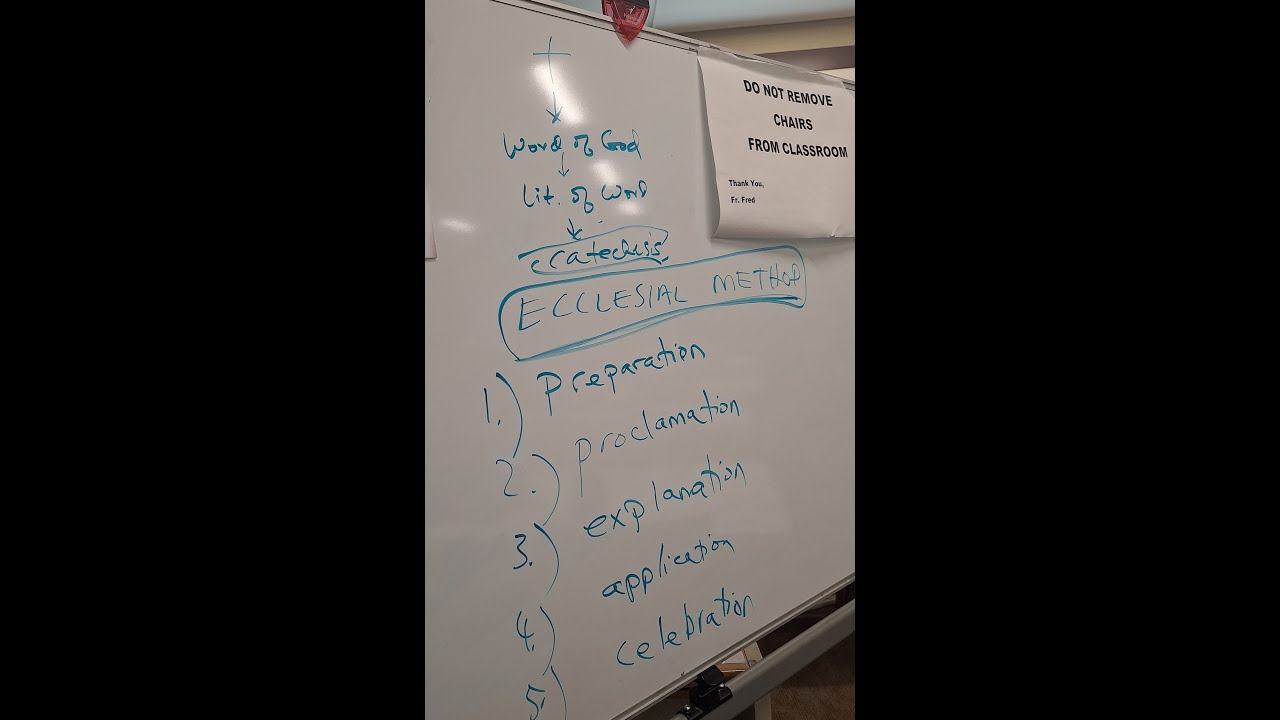 Word of God
Lit. of Word
Catechesis
ECCLESIAL METHOD
1.) Preparation
2.) proclamation
3.) explanation
4.) application
5.) celebration
DO NOT REMOVE
CHAIRS
FROM CLASSROOM
Thank You,
Fr. Fred